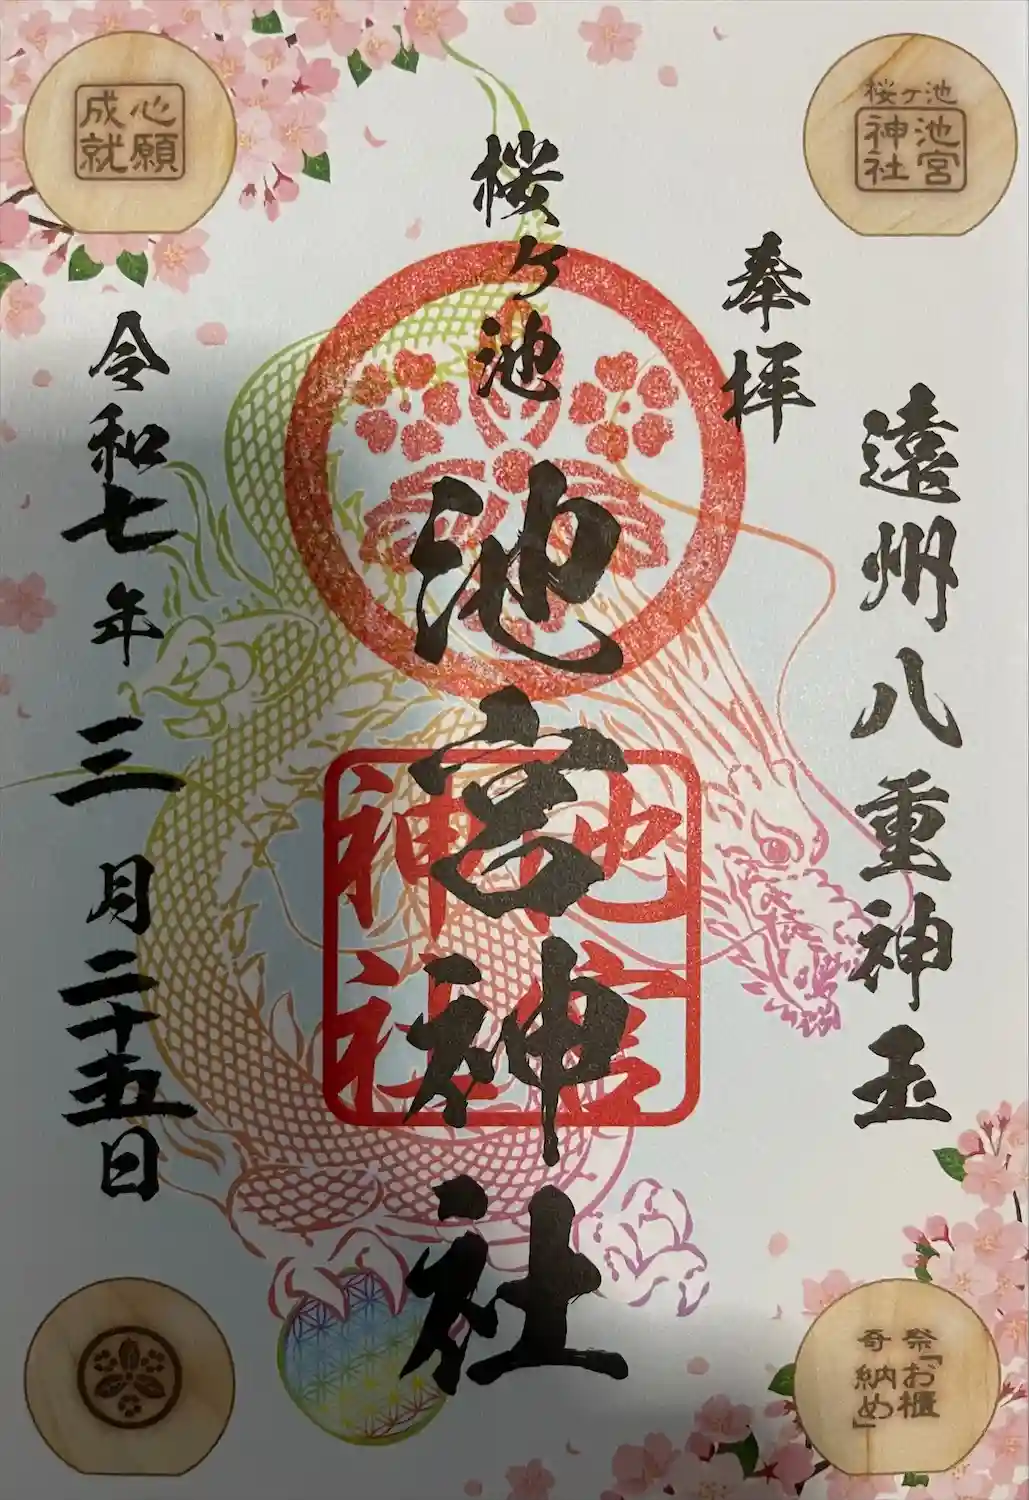 桜ヶ池
池宮
神社
心願
成就
遠州八重神玉
奉拝
桜ヶ池
池宮神社
池宮
神社
令和七年三月二十五日
祭「お櫃
奇納め」